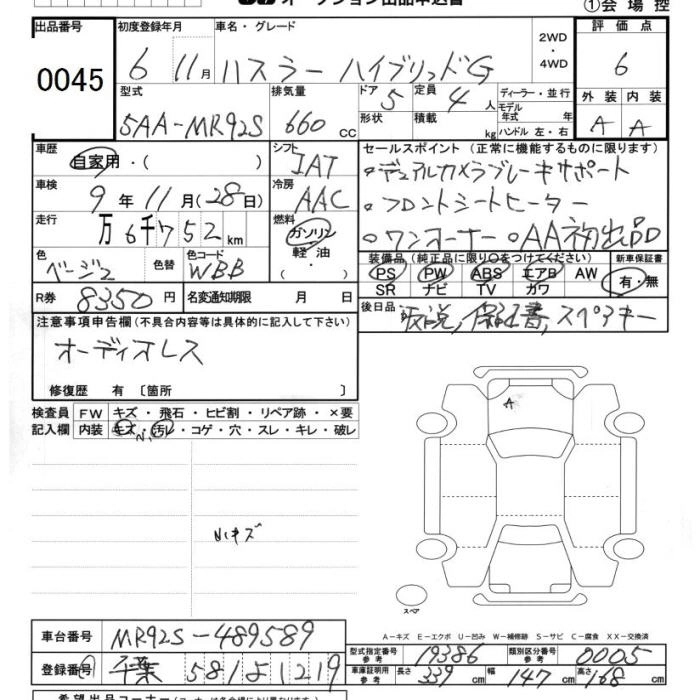 オークション出品申込書
①会場控
出品番号 初度登録年月 車名・グレード 2WD ・ 4WD 評価点
0045 6 11月 ハスラー ハイブリッドG 6
型式 排気量 ドア 5 定員 4人 ディーラー・並行 外装 内装
5AA-MR92S 660 CC 形状 積載 kg モデル年式 年 ハンドル 左・右 A A
車歴 自家用・( ) シフト IAT セールスポイント(正常に機能するものに限ります)
車検 9年11月(28日) 冷房 AAC ・デュアルカメラブレーキサポート
走行 万6千752km 燃料 ガソリン ・ 軽油 ・フロントシートヒーター
・ワンオーナー ・AA初出品
色 ベージュ 色替 色コード WBB 装備品(純正品に限り○をつけてください) 新車保証書
PS PW ABS エアB AW 有・無
SR ナビ TV カワ
R券 8350円 名変通知期限 月 日 後日品 取説,保証書,スペアキー
注意事項申告欄(不具合内容等は具体的に記入して下さい)
オーディオレス
修復歴 有 〔箇所 〕
検査員 FW キズ・飛石・ヒビ割・リペア跡・×要
記入欄 内装 キズ・汚レ・コゲ・穴・スレ・キレ・破レ
A
小キズ
スペア
A-キズ E-エクボ U-凹み W-補修跡 S-サビ C-腐食 XX-交換済
車台番号 MR92S-489589 型式指定番号 参考 19386 類別区分番号 参考 0005
登録番号 千葉 581よ1219 車庫証明用 参考 長さ 339cm 幅 147cm 高さ 168cm
希望出品コーナー